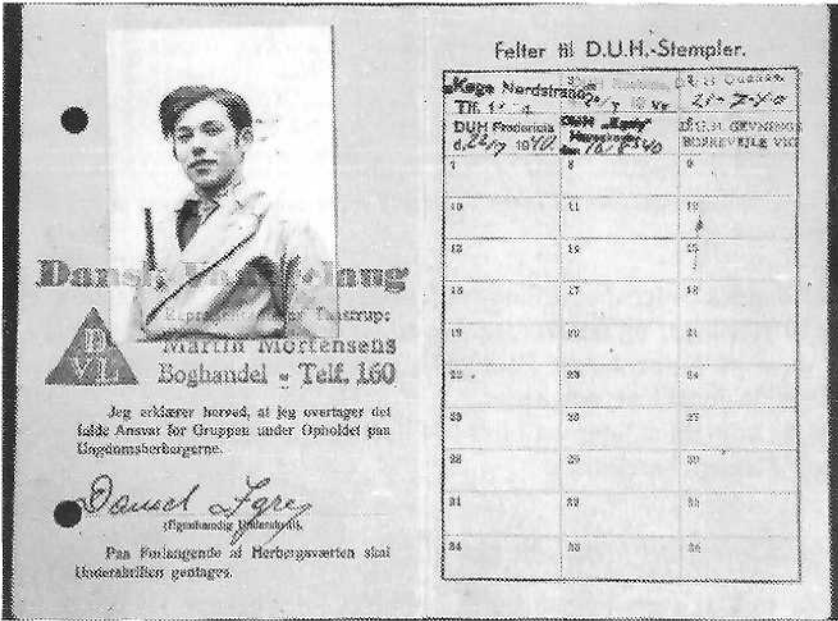 Dansk
D
VL
Martin Mortensens
Boghandel - Telf. 160
Jeg erklærer herved, at jeg overtager det
fulde Ansvar for Gruppen under Opholdet paa
Ungdomsherbergerne.
(Egenhændig Underskrift).
Paa Forlangende af Herbergsværten skal
Underskriften gentages.
Felter til D.U.H.-Stempler.
Køge Nordstrand
Tlf.
21-7-40
DUH Fredericia
d. 22/7 1940.
DUH
16/8 40
D.U.H.
7 8 9
10 11 12
13 14 15
16 17 18
19 20 21
22 23 24
25 26 27
28 29 30
31 32 33
34 35 36